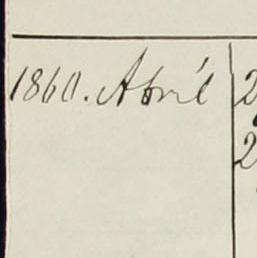 1860. Abril 2
2